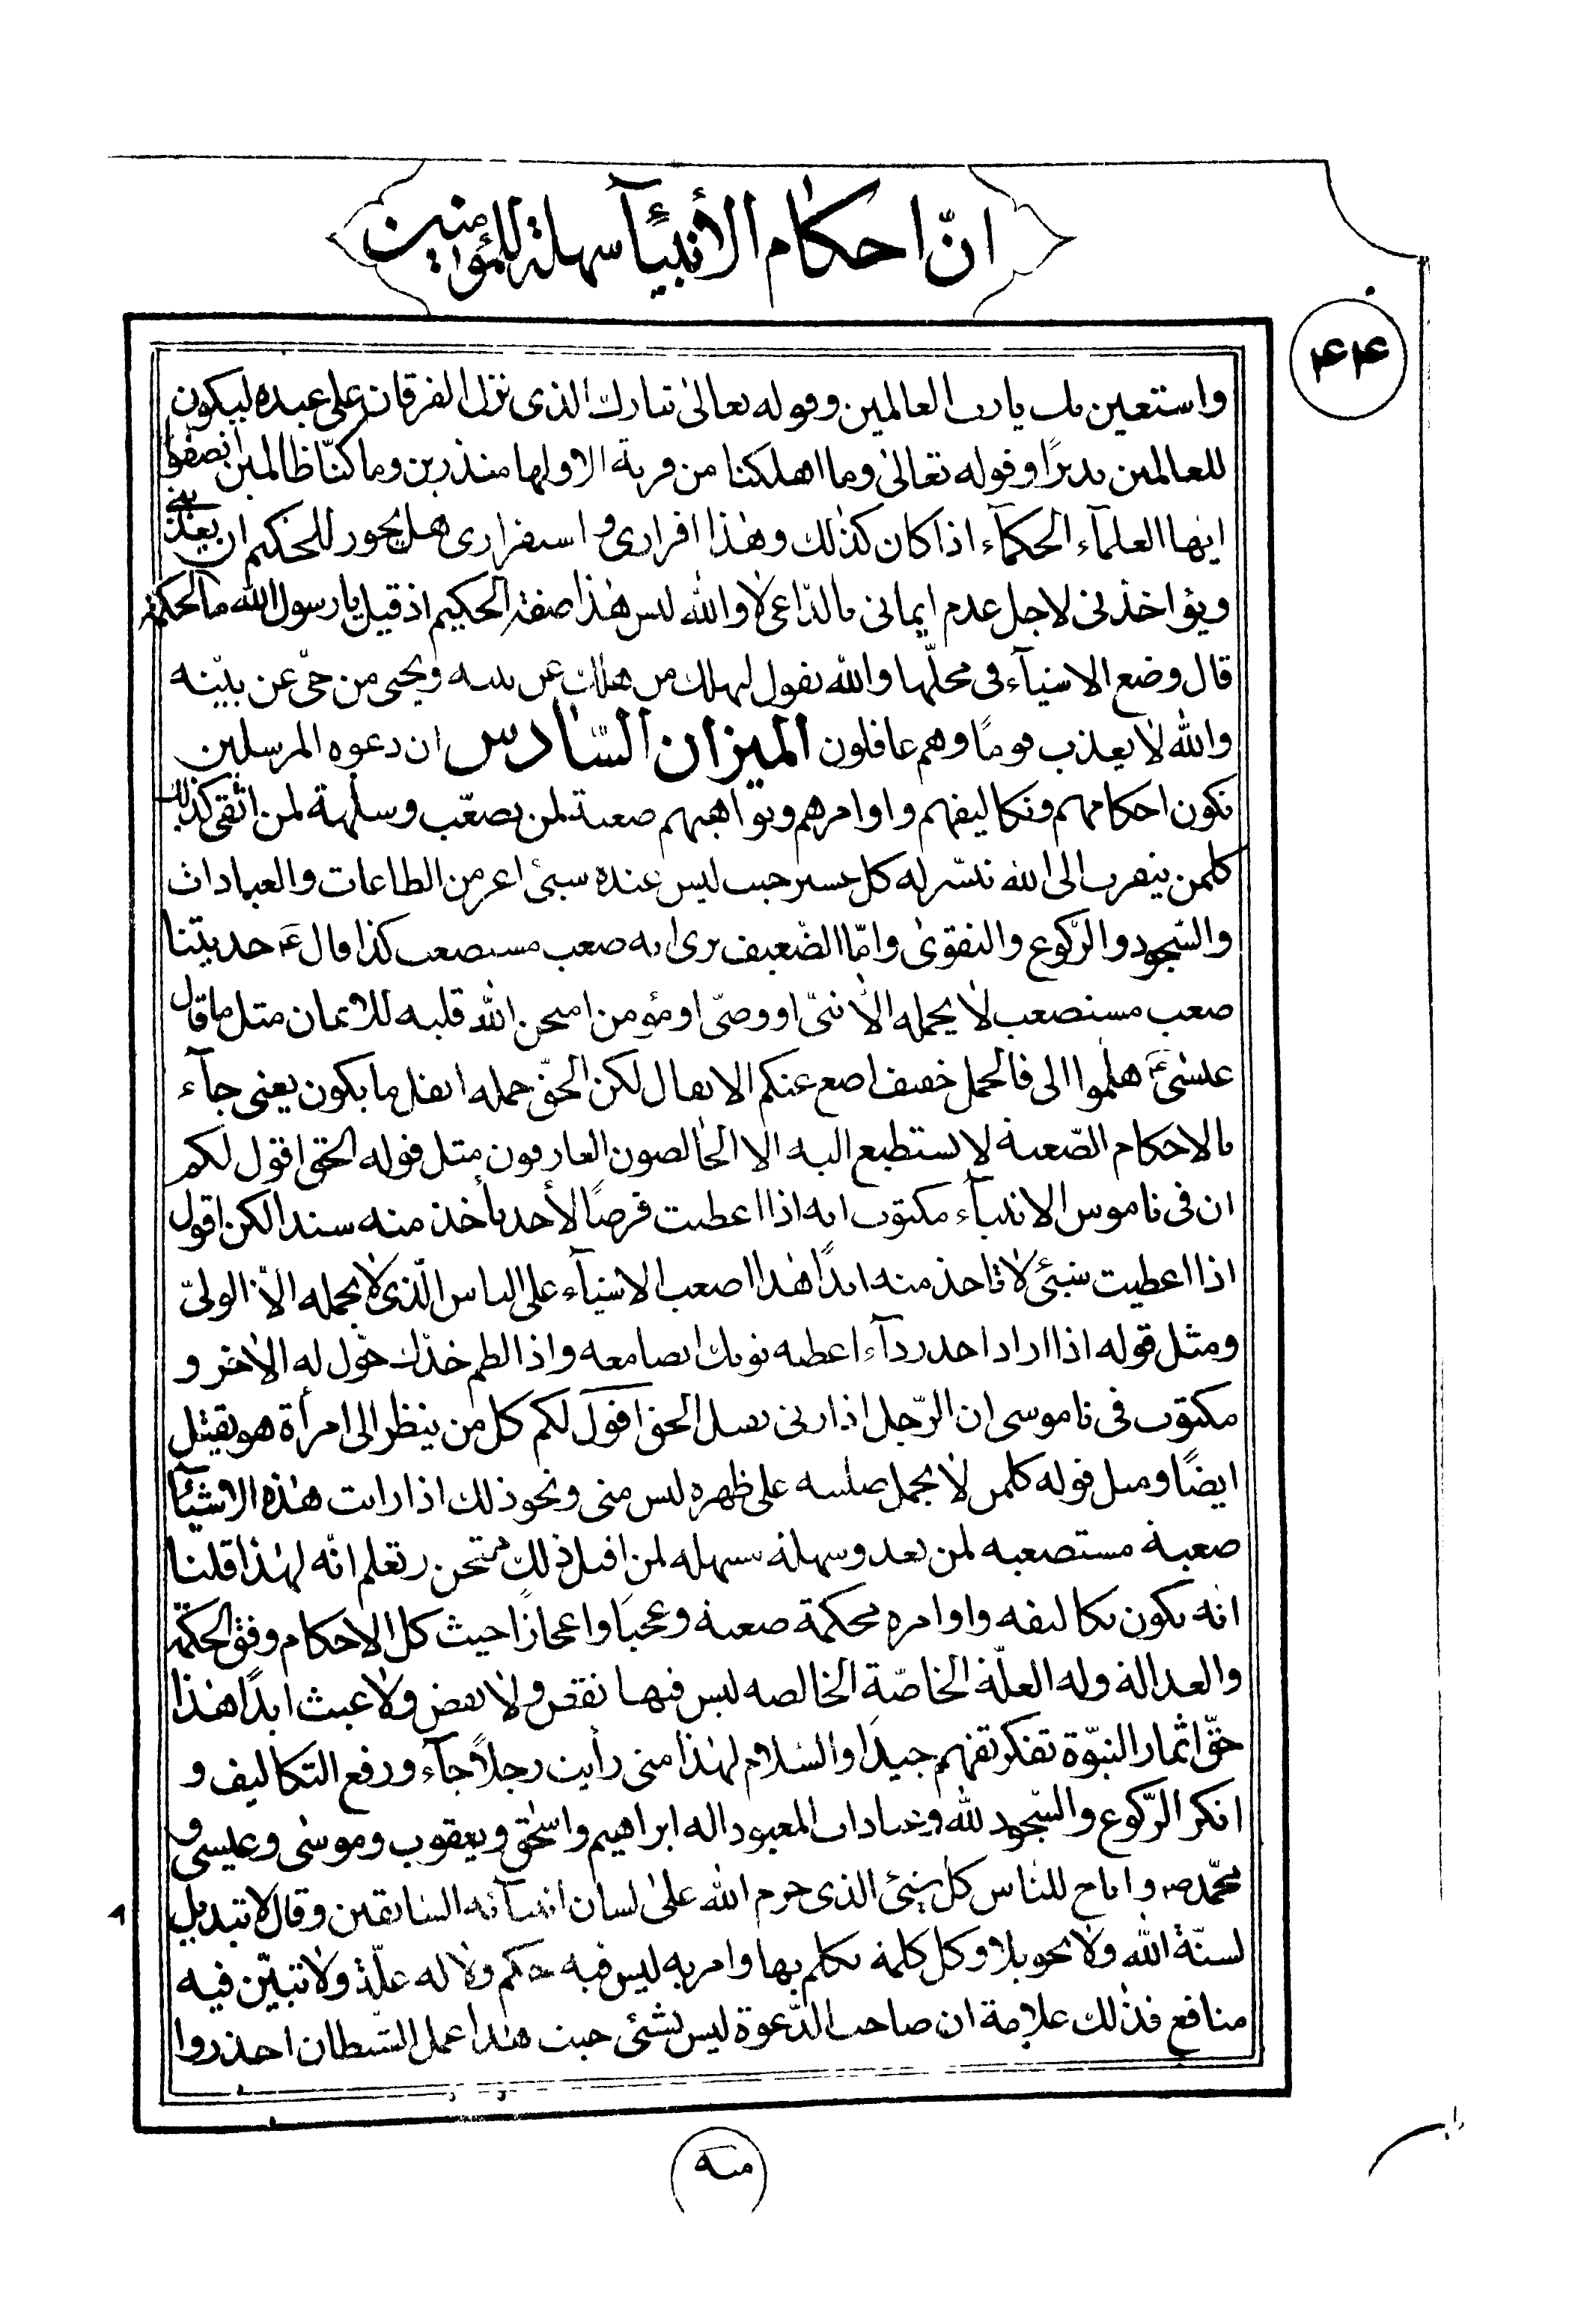 انّ احكام الأنبيٓآء سهلة للمؤمنين
۴۴
واستعين بك يا رب العالمين وقوله تعالىٰ تبارك الذى نزل الفرقان على عبده ليكون
للعالمين نذيرًا وقوله تعالىٰ وما اهلكنا من قرية الا ولها منذرين وما كنّا ظالمين انصفوا
ايها العلمآء الحكمآء اذا كان كذلك وهٰذا اقرارى و استقرارى هل يجوز للحكيم ان يعذّبنى
ويؤاخذنى لاجل عدم ايمانى بالدّاعى لا والله ليس هٰذا صفة الحكيم اذ قيل يا رسول الله ما الحكمة
قال وضع الاشيآء فى محلّها والله يقول ليهلك من هلك عن بينه ويحيى من حىّ عن بيّنه
والله لا يعذب قومًا وهم غافلون الميزان السّادس ان دعوه المرسلين
تكون احكامهم وتكاليفهم واوامرهم ونواهيهم صعبة لمن يصعّب وسلهة لمن اتّقى كذلك
كلمن يتقرب الى الله تتسّر له كل عسير حيث ليس عنده شئ اعز من الطاعات والعبادات
والسّجود والرّكوع والتقوىٰ وامّا الضّعيف يرى انه صعب مستصعب كذا قال ع حديثنا
صعب مستصعب لا يحمله الا نبىّ او وصىّ او مؤمن امتحن الله قلبه للايمان مثل ما قال
عيسىٰ ع هلمّوا الى فالحمل خفيف اضع عنكم الاثقال لكن الحقّ حمله اثقل ما يكون يعنى جآء
بالاحكام الصّعبة لا يستطيع اليه الا الخالصون العارفون مثل قوله الحق اقول لكم
ان فى ناموس الانبيآء مكتوب انه اذا اعطيت قرضًا لأحد يأخذ منه سندا لكن اقول
اذا اعطيت شئ لا تاخذ منه ابدًا هٰذا اصعب الاشيآء على الناس الّذى لا يحمله الّا الولىّ
ومثل قوله اذا اراد احد ردآء اعطيه ثوبك ايضا معه واذا لطم خدّك حوّل له الاخر و
مكتوب فى ناموسى ان الرّجل اذا زنى يقتل الحق اقول لكم كل من ينظر الى امرأة هو يقتل
ايضًا ومثل قوله كلمن لا يحمل صليبه على ظهره ليس منى ونحو ذلك اذا رايت هٰذه الاشيآء
صعبة مستصعبه لمن بعد وسهلة سهله لمن اقبل ذلك ممتحن تعلم انّه لهٰذا قلنا
انه يكون تكاليفه واوامره محكمة صعبة وعجبًا واعجازًا حيث كل الاحكام وفق الحكمة
والعدالة وله العلّة الخاصّة الخالصه ليس فيها نقص ولا بعض ولا عبث ابدًا هٰذا
حقّ اثمار النبوّة تفكر تفهم جيدًا والسّلام لهٰذا متى رأيت رجلاً جآء ورفع التكاليف و
انكر الرّكوع والسّجود لله وعبادات المعبود اله ابراهيم واسحٰق ويعقوب وموسٰى وعيسى و
محمّد ص واباح للناس كل شئ الذى حرم الله علىٰ لسان انبيآئه السابقين وقال لا تبديل
لسنّة الله ولا تحويلا وكل كلمة تكلم بها وامر به ليس فيه حكم ولا له علّة ولا تتبيّن فيه
منافع فذلك علامة ان صاحب الدّعوة ليس بشئ حيث هٰذا عمل الشيطان احذروا
منه